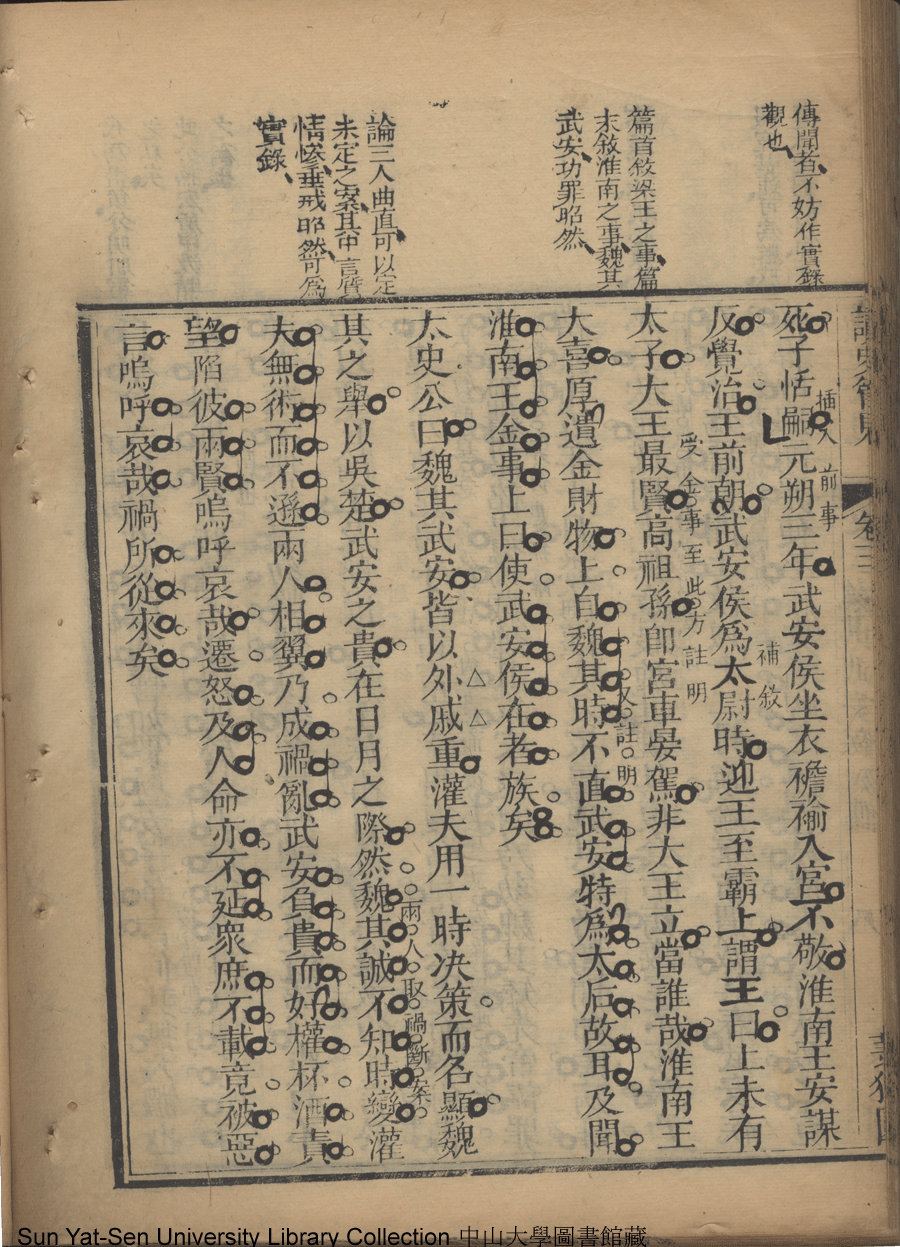 傳聞者不妨作實錄
觀也
篇首敘梁王之事篇
末敘淮南之事魏其
武安功罪昭然
論三人曲直可以定
未定之案其中言質
情慘垂戒昭然可為
實錄
卷三
死子恬嗣元朔三年武安侯坐衣襜褕入宮不敬淮南王安謀
插入前事
反覺治王前朝武安侯爲太尉時迎王至霸上謂王曰上未有
補敘
太子大王最賢高祖孫卽宮車晏駕非大王立當誰哉淮南王
受金事至此方註明
大喜厚遺金財物上自魏其時不直武安特爲太后故耳及聞
又註明
淮南王金事上曰使武安侯在者族矣
太史公曰魏其武安皆以外戚重灌夫用一時决策而名顯魏
其之舉以吳楚武安之貴在日月之際然魏其誠不知時變灌
兩人取禍斷案
夫無術而不遜兩人相翼乃成禍亂武安負貴而好權杯酒責
望陷彼兩賢嗚呼哀哉遷怒及人命亦不延衆庶不載竟被惡
言嗚呼哀哉禍所從來矣
Sun Yat-Sen University Library Collection 中山大學圖書館藏